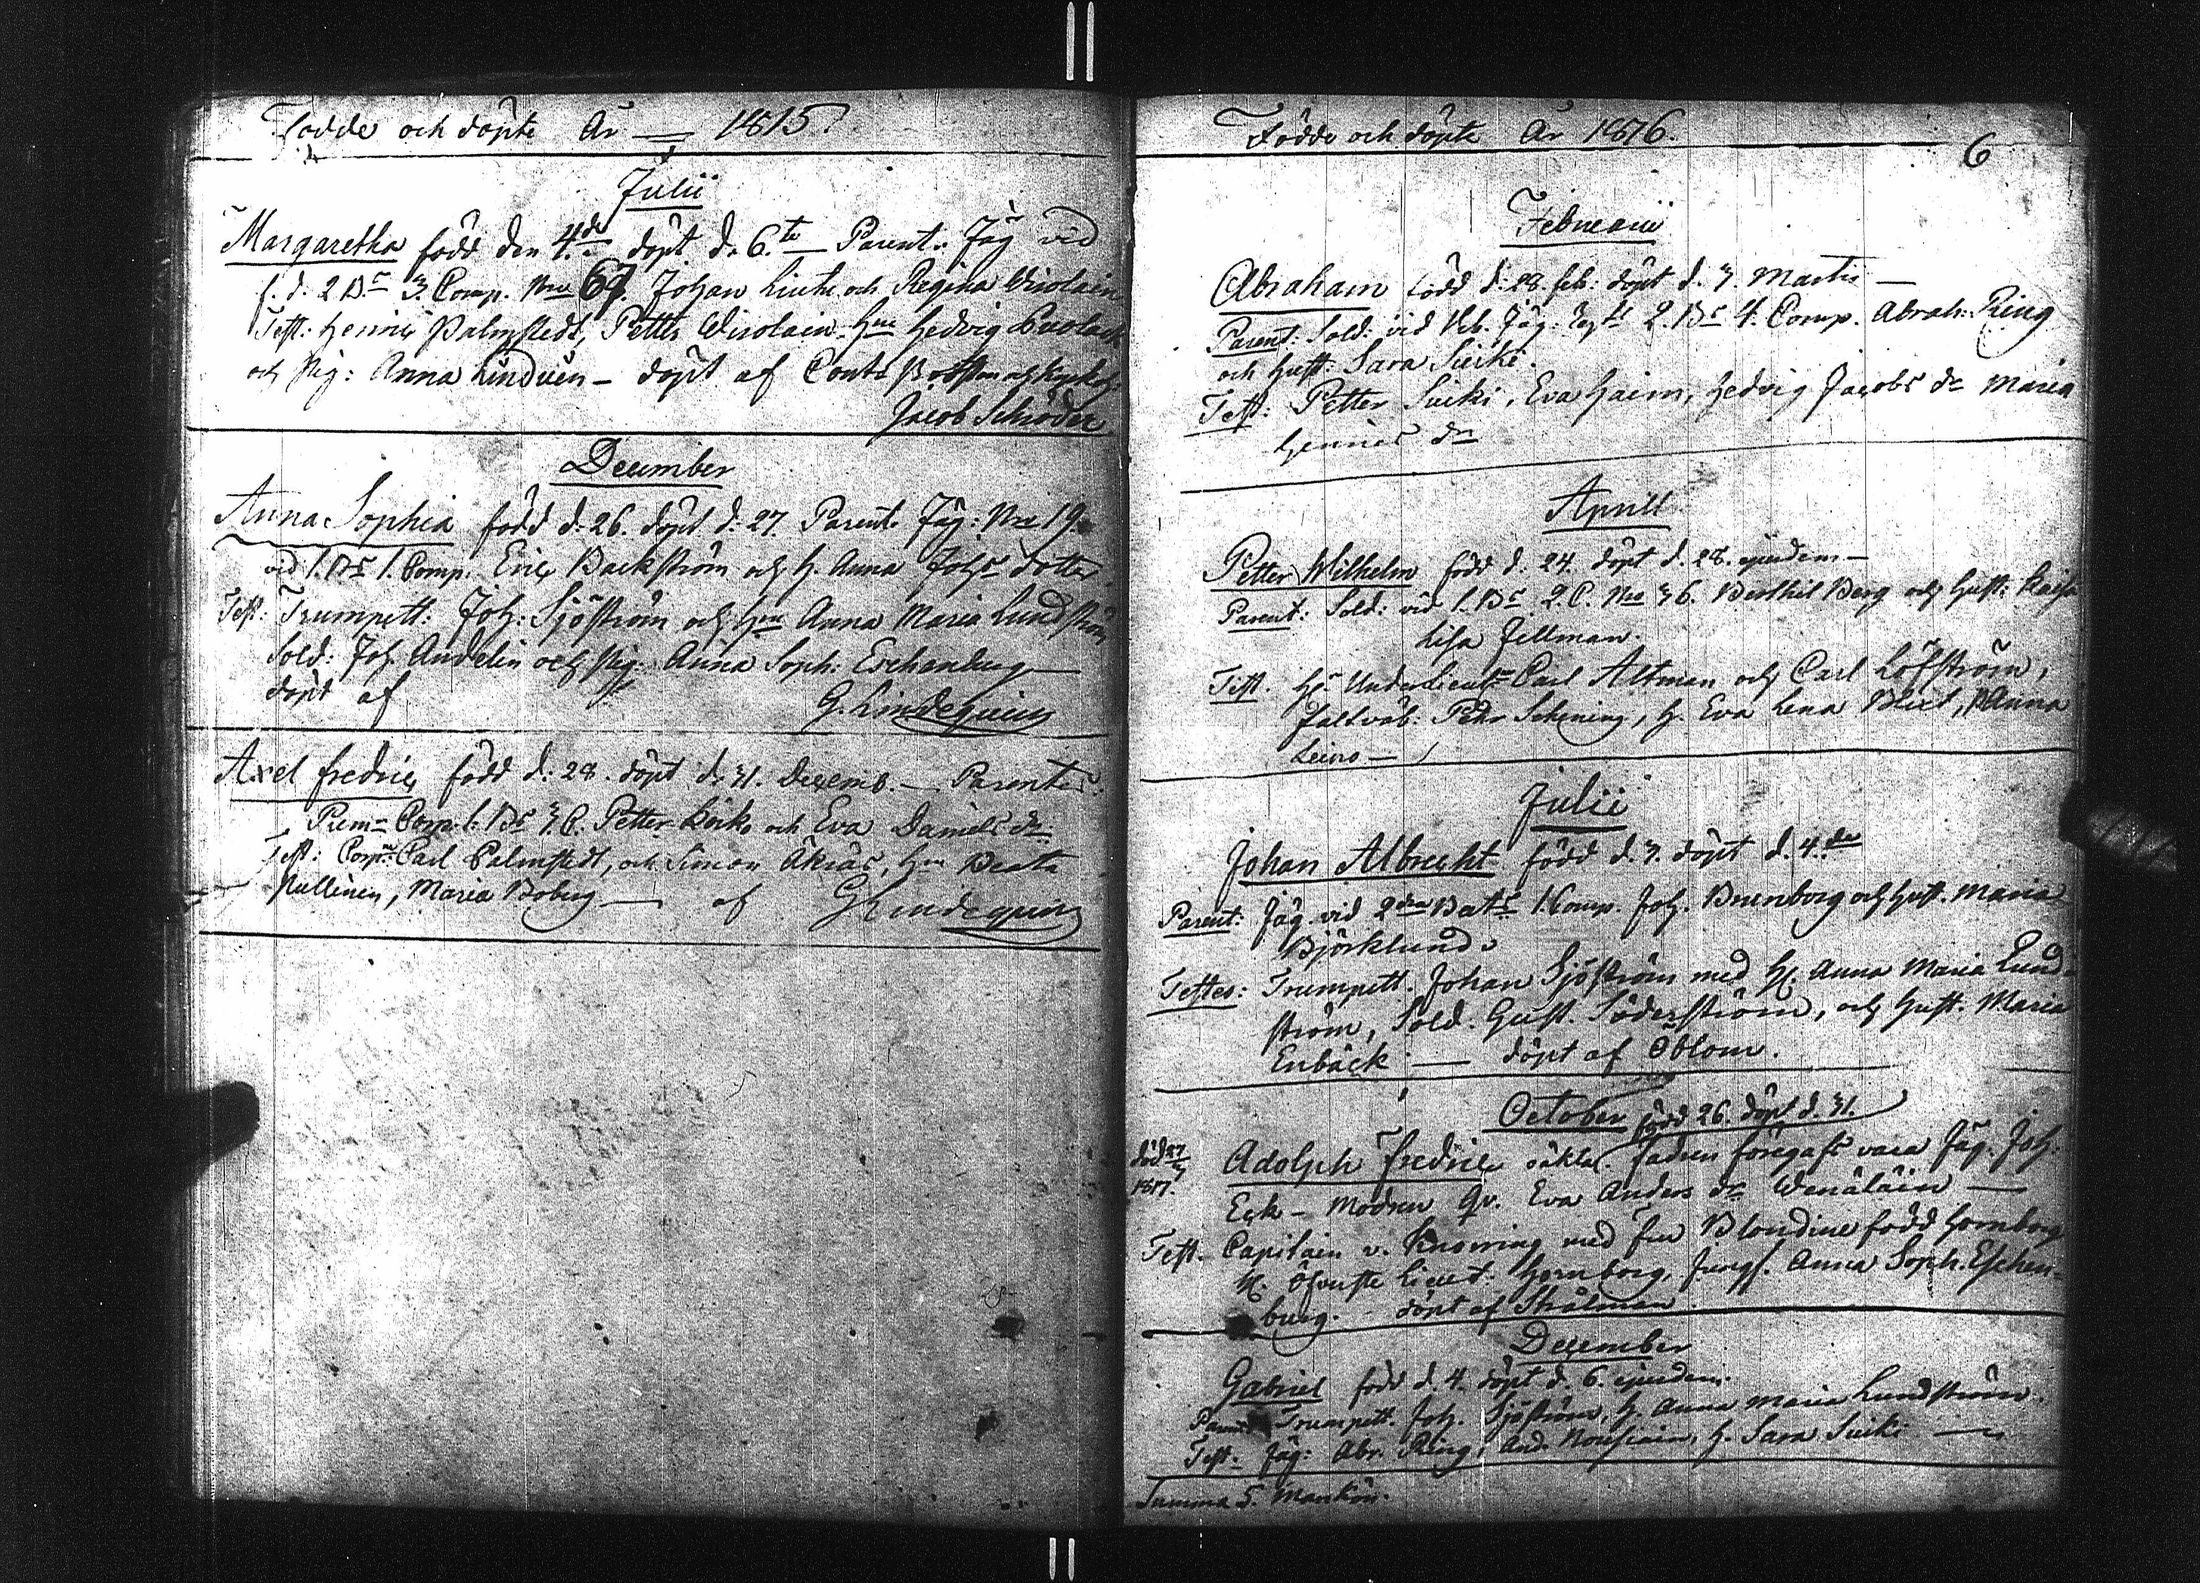 Födde och döpte År — 1815.
Julii
Margaretha född den 4.de döpt d. 6.te — Parent. Jäg vid
f. d. 2 B.s 3. Comp. Nro 67. Johan och Regina Wirolain
Test: Henric Palmstedt, Petter Wirolain. Hu Hedvig
och Pig: Anna Lindven — döpt af
Jacob Schröder
December
Anna Sophia född d: 26. döpt d: 27. Parent. Jäg: Nro 19.
vid 1. Bs 1. Comp. Eric Backström och H. Anna Johs dotter.
Test: Trumpett: Joh: Sjöström och Hu Anna Maria Lundström
Sold: Joh. Andelin och Pig: Anna Soph: Eschenburg —
döpt af G. Lindequist
Axel Fredric född d: 28. döpt d. 31. Decemb. — Parenter:
Prem. Corp. 1. Bs 3. C. Petter och Eva Daniels dr
Test: Corp. Carl Palmstedt, och Simon Åkrås, Hu Beata
Pullinen, Maria Boberg — af G Lindequist
Födde och döpte År 1816.
6
Februarii
Abraham född d: 28. feb: döpt d. 3 Martii —
Parent: Sold: vid Jäg: 2. Bs 4. Comp. Abrah: Ring
och Hust: Sara Suikí.
Test: Petter Suiki, Eva Haim, Hedvig Jacobs dr Maria
Hennics dr
Aprill
Petter Wilhelm född d. 24. döpt d. 28. ejusdem —
Parent: Sold: vid 1. Bs 2. C. Nro 36. Berthil Berg och Hust: Kaisa
Lisa Fellman.
Test. Hr UnderLieut Carl Altman och Carl Löfström,
Faltväb: Pehr Schening, H. Eva Lena Blixt, P. Anna
Leino —
Julii
Johan Albrecht född d. 3. döpt d. 4.de
Parent: Jäg. vid 2dra Bats 1. Comp. Joh. Brunborg och Hust. Maria
Björklund.
Testes: Trumpett. Johan Sjöström med H. Anna Maria Lund-
ström, Sold. Gust. Söderström, och Hust. Maria
Enbäck — döpt af Öblom.
October född 26. döpt d. 31.
död 27/3 1817.
Adolph Fredric oäkta. fadren föregafs vara Jäg. Joh:
Eck — Modren Qv. Eva Anders dr Wenäläin —
Test. Capitain v. Knorring med Fru Blondine född Hornborg
H. Öfverste Lieut: Hornborg, Jungf. Anna Soph. Eschen-
burg. — döpt af Strålman.
December
Gabriel född d. 4. döpt d. 6. ejusdem.
Parent: Trumpett. Joh. Sjöström, H. Anna Maria Lundström.
Test. Jäg: Abr. Ring, And. Nousiain, H. Sara Suiki —
Summa 5. Mankön.